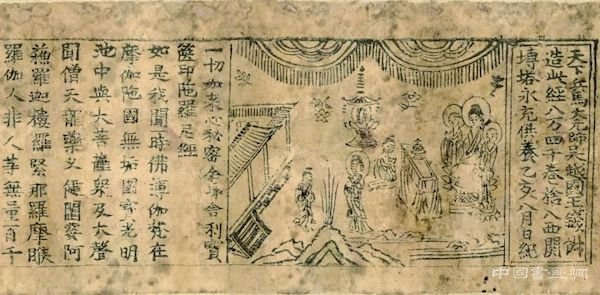 天下兵馬大元帥吳越國王錢俶
造此經八万四千卷捨入西關
塼塔永充供養乙亥八月日紀
一切如來心祕密全身舍利寶
篋印陁羅尼經
如是我聞一時佛薄伽梵在
摩伽陁國無垢園寶光明
池中與大菩薩衆及大聲
聞僧天龍藥叉健闥婆阿
蘓羅迦樓羅緊那羅摩睺
羅伽人非人等無量百千
中国書画網